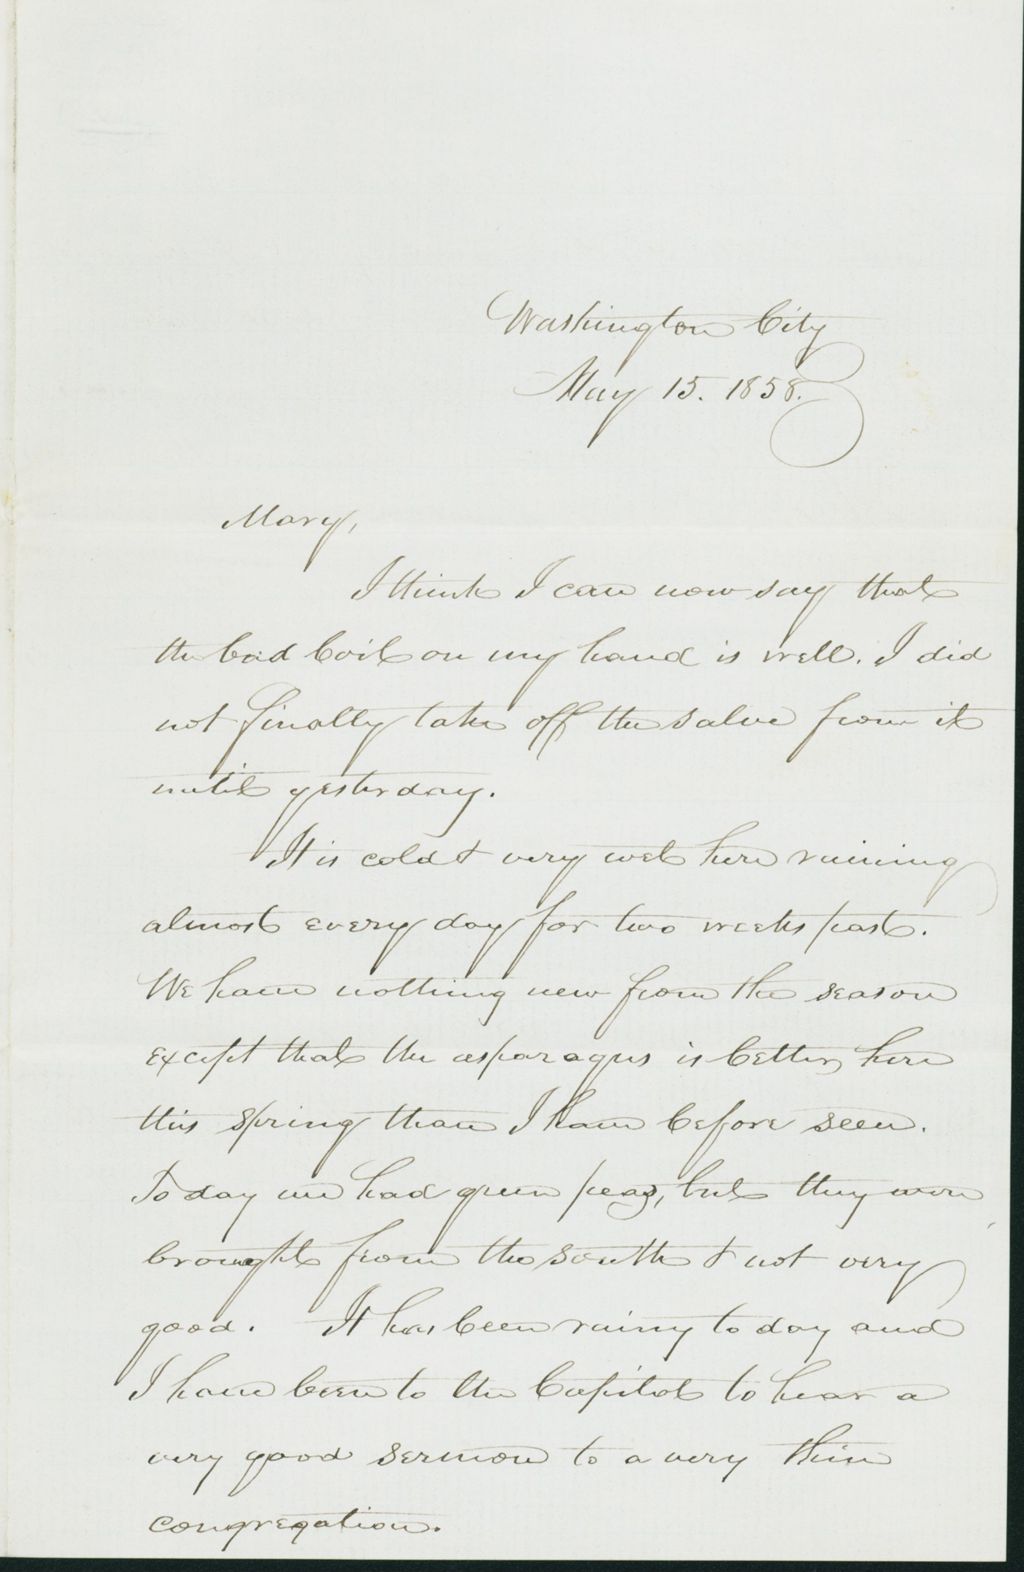 Washington City
May 15. 1858.
Mary,
I think I can now say that
the bad boil on my hand is well. I did
not finally take off the salve from it
until yesterday.
It is cold & very wet here raining
almost every day for two weeks past.
We have nothing new from the season
except that the asparagus is better here
this spring than I have before seen.
To day we had green peas, but they were
brought from the south & not very
good. It has been rainy to day and
I have been to the Capitol to hear a
very good sermon to a very thin
congregation.